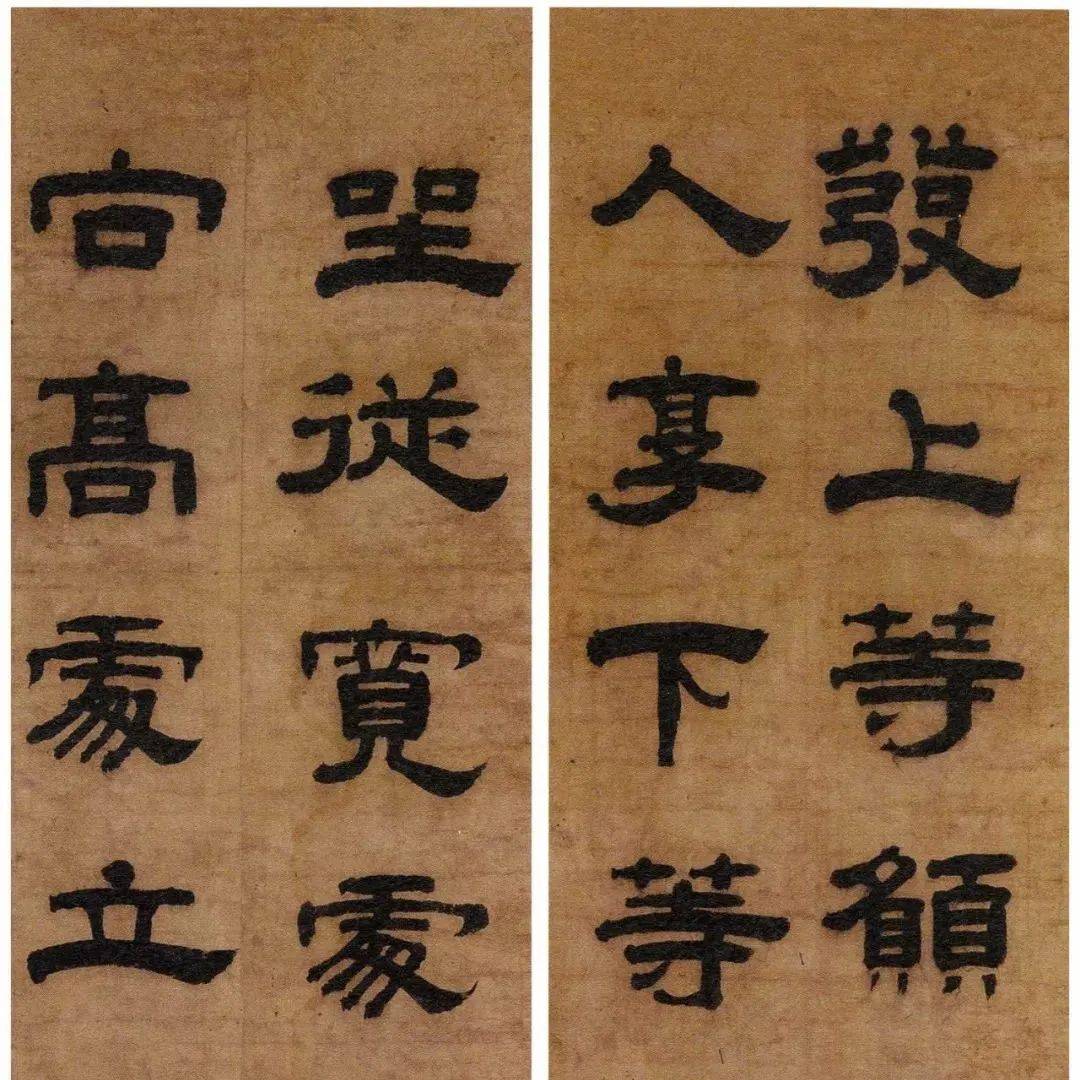 發上等願
人享下等
坐從寬處
向高處立